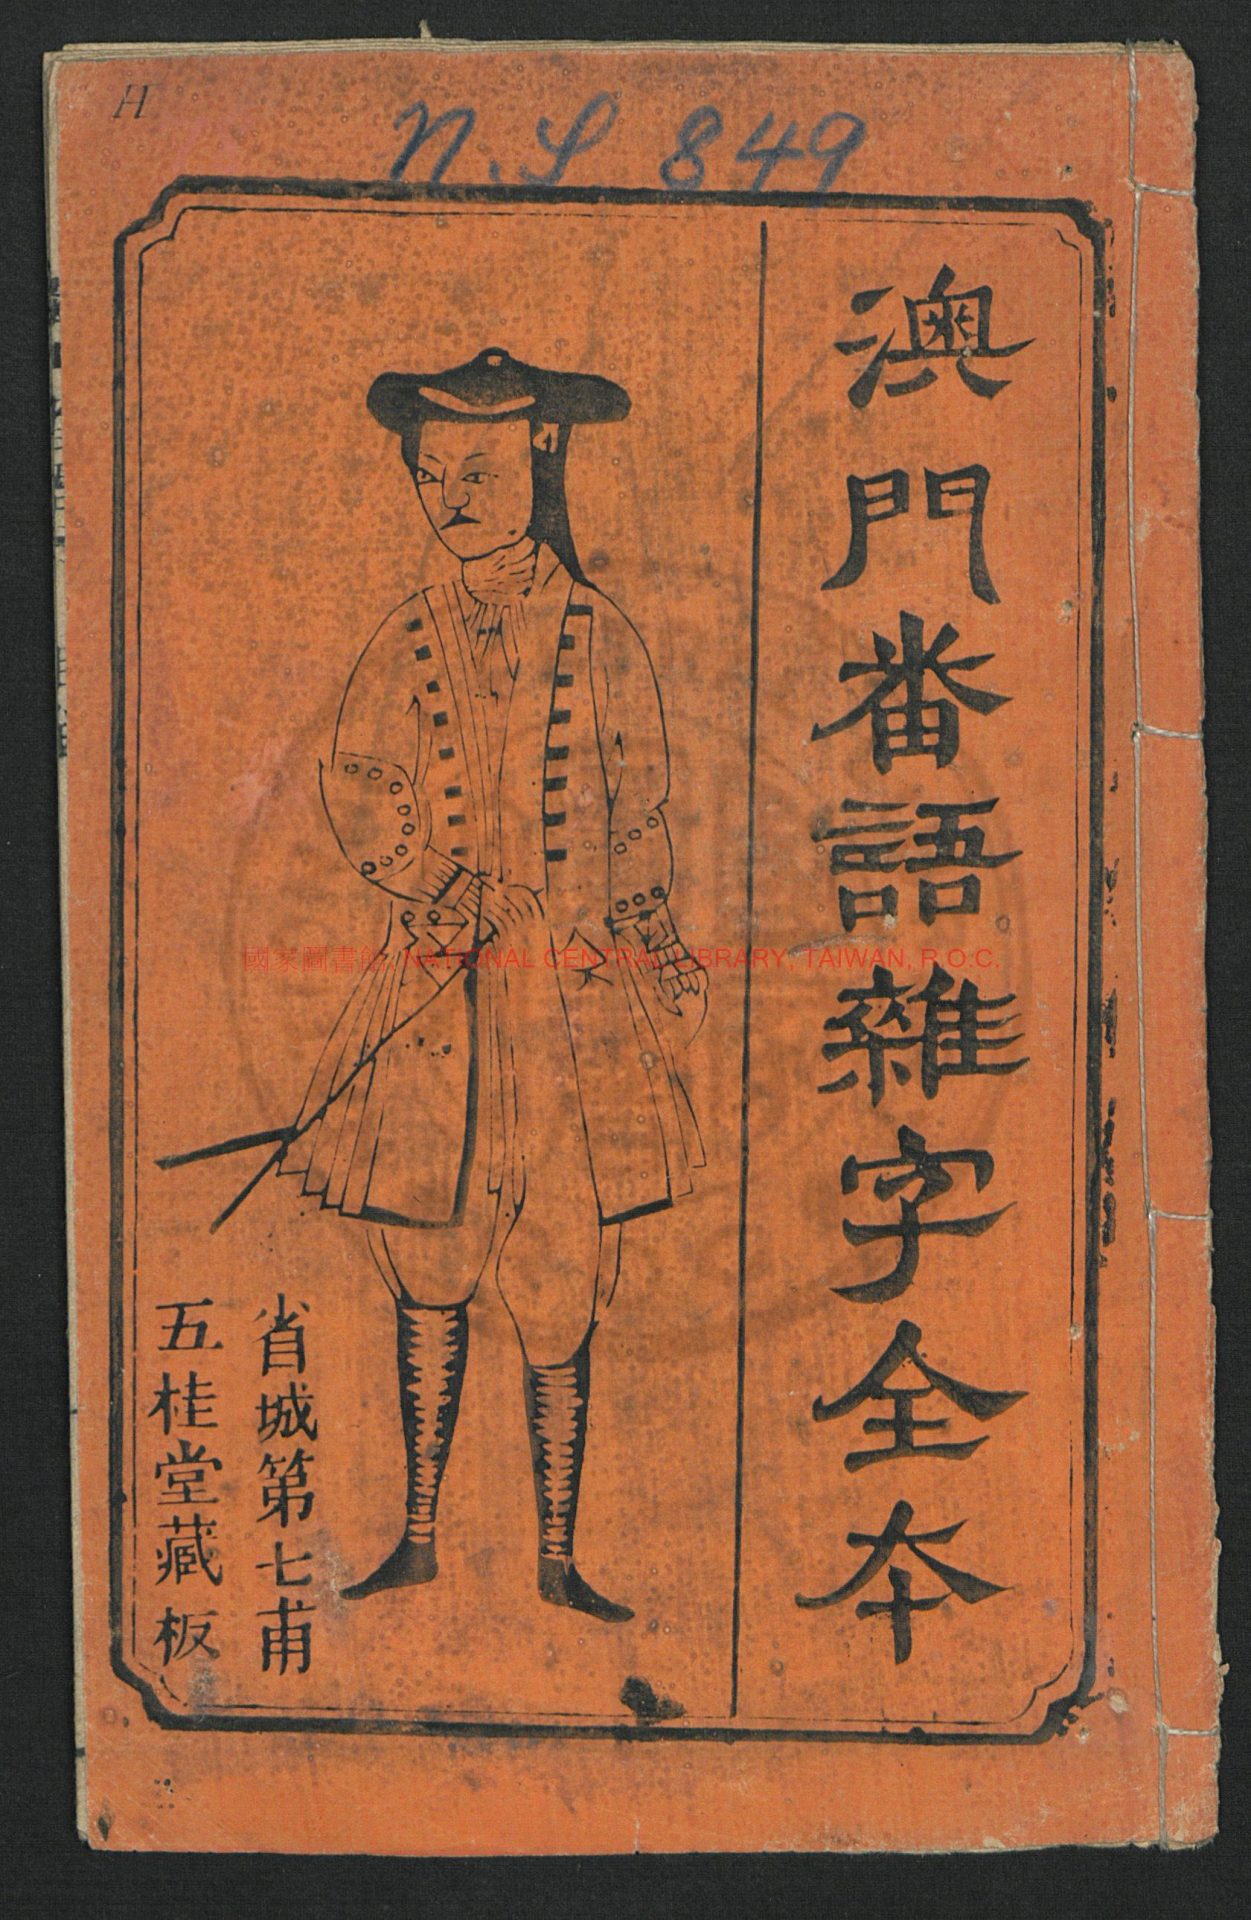 H
N.S 849
澳門番語雜字全本
省城第七甫
五桂堂藏板
國家圖書館, NATIONAL CENTRAL LIBRARY, TAIWAN, R.O.C.